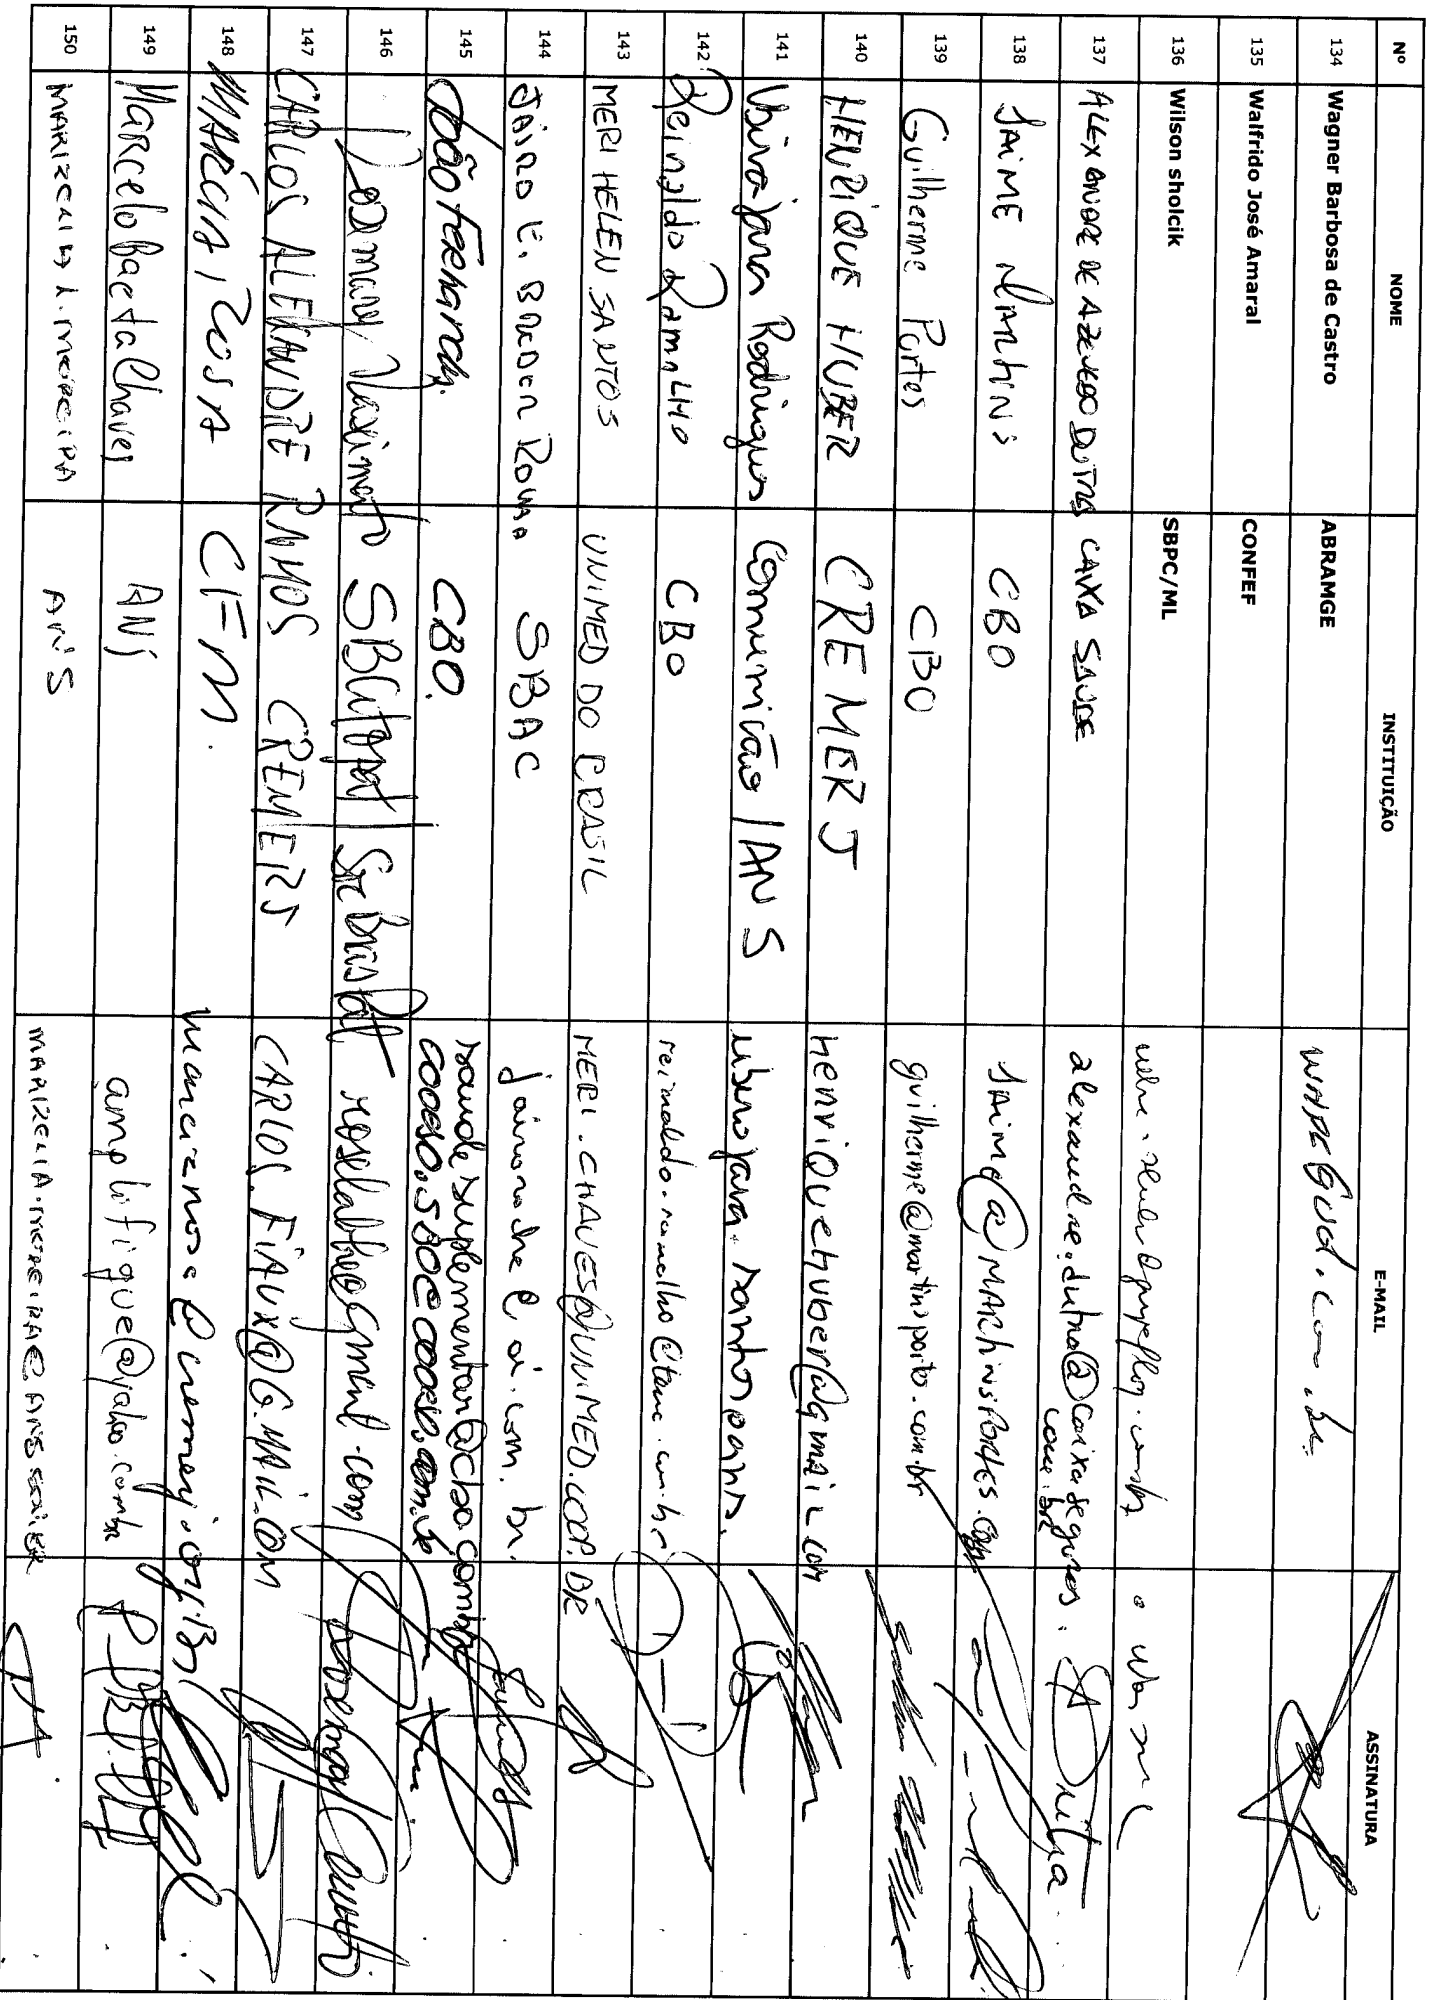 Nº NOME INSTITUIÇÃO E-MAIL ASSINATURA
134 Wagner Barbosa de Castro ABRAMGE
135 Walfrido José Amaral CONFEF
136 Wilson sholcik SBPC/ML
137 ALEXANDRE DE AZEVEDO DUTRA CAIXA SAÚDE alexandre.dutra@caixaseguros.com.br Dutra
138 JAIME MARTINS CBO JAime@MARTINSPORTES.COM
139 Guilherme Portes CBO guilherme@martinsportes.com.br
140 HENRIQUE HUBER CREMERJ HenriQuehuber@gmail.com
141 Ubirajara Rodrigues Comunicão/ANS ubirajara.santos@ans.
142 Reinaldo RamaLHO CBO reinaldo.ramalho@
143 MERI HELEN SANTOS UNIMED DO BRASIL MERI.CHAVES@UNIMED.COOP.BR
144 JAIRO E. SBAC
145 João Fernandes. CBO. saudesuplementar@cbo.com.br
146 Rosemary Nascimento SBCitopat/Soc Bras Pat roselabhe@gmail.com
147 CARLOS ALEXANDRE RAMOS CREMERS CARLOS.FIAUX@G.MAIL.COM
148 MÁRCIA ROSA CFM.
149 Marcelo Baeta Chaves ANS amplifique@yahoo.com.br
150 MARIZELIA L. MOREIRA ANS MARIZELIA.MOREIRA@ANS.GOV.BR